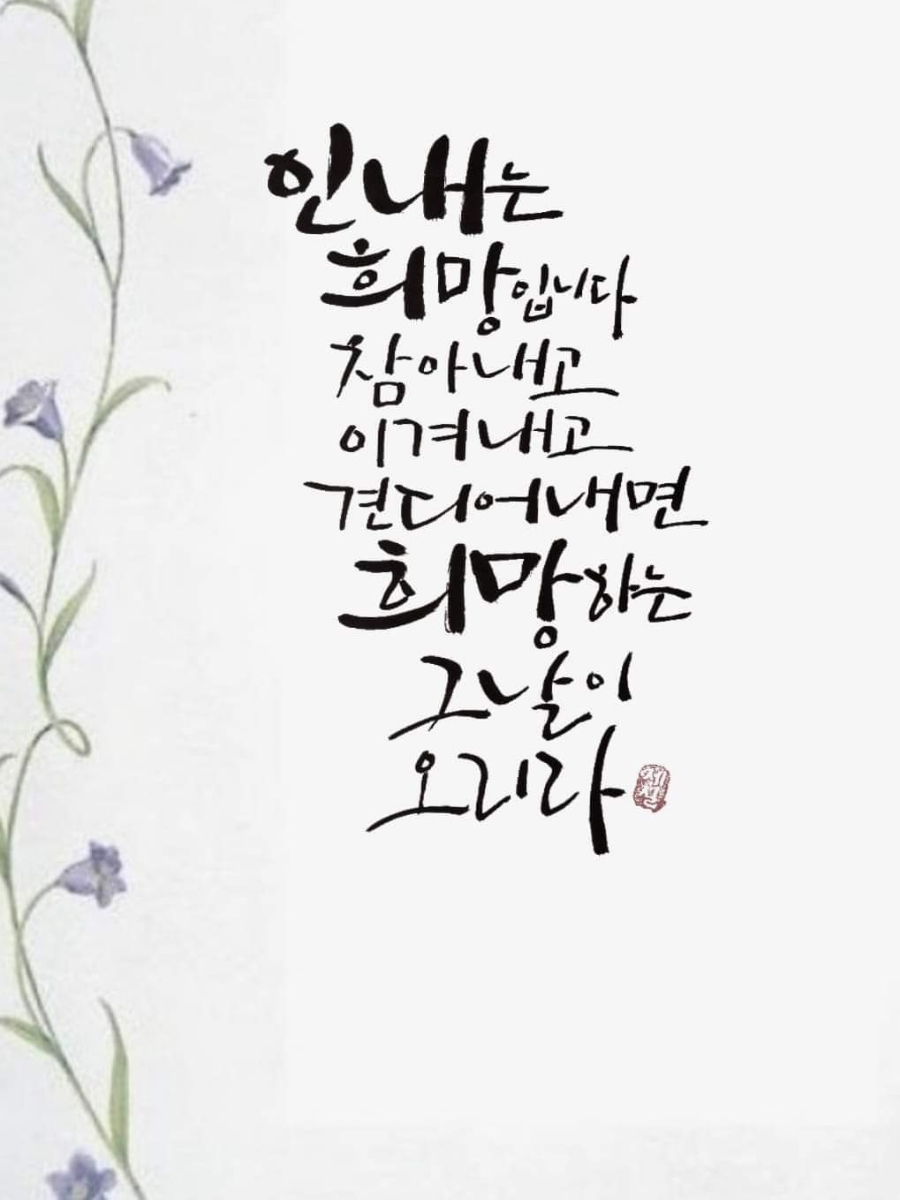 인내는
희망입니다
참아내고
이겨내고
견디어내면
희망하는
그날이
오리라